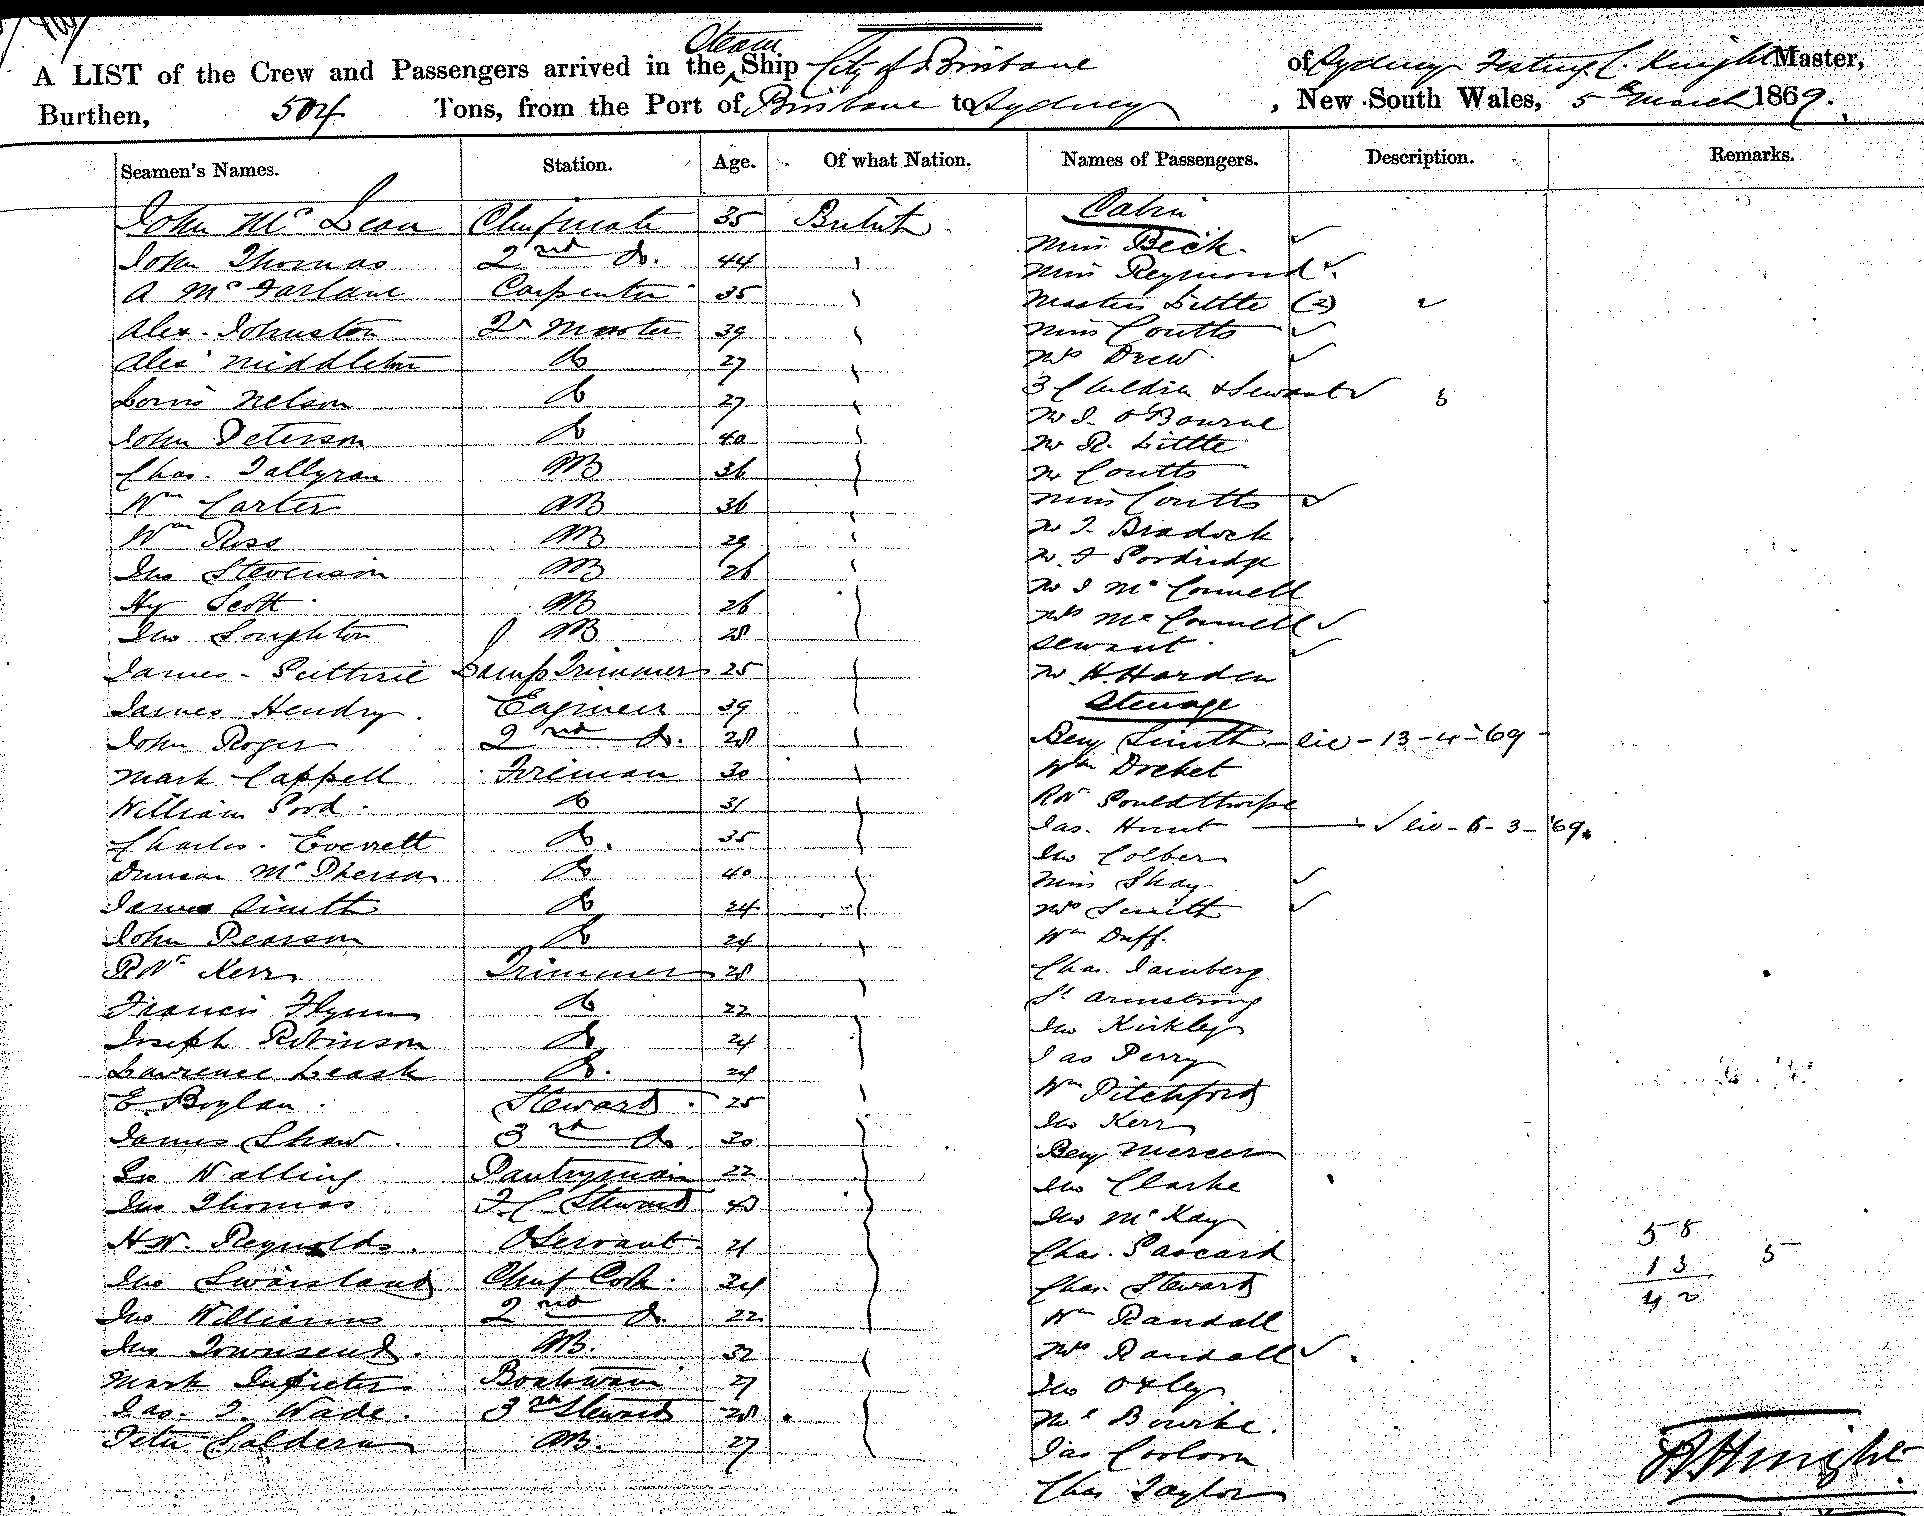 Steam
A LIST of the Crew and Passengers arrived in the Ship City of Brisbane of Sydney Knight Master,
Burthen, 504 Tons, from the Port of Brisbane to Sydney, New South Wales, 5th March 1869.
Seamen's Names. Station. Age. Of what Nation. Names of Passengers. Description. Remarks.
John McLean Chief mate 35 British
John Thomas 2nd Do. 44
A McFarlane Carpenter 35
Alex. Johnston Qr Master 39
Alex Middleton Do 27
Louis Nelson Do 27
John Peterson Do 40
Chas. Tallyran AB 36
Wm Carter AB 36
Wm Ross AB 29
Jno Stevenson AB 26
Hy Scott AB 26
Jno Loughton AB 28
James Guthrie Lamp Trimmer 25
James Hendry Engineer 39
John Roger 2nd Do. 28
Mark Cappell Fireman 30
William Do 31
Charles Everett Do. 35
Duncan McPherson Do 40
James Smith Do 24
John Pearson Do 24
Rt Kerr Trimmer 28
Francis Flynn Do 22
Joseph Robinson Do 24
Lawrence Leask Do. 24
E. Boylan Steward 25
James Shaw 3rd Do 20
Walling Pantryman 22
Jno Thomas F.C. Steward
H.W. Reynolds Servant 21
Jno Swainsland Chief Cook 34
Jno Williams 2nd Do. 22
Jno Townsend AB. 32
Mark Boatswain 27
Jas. T. Wade 3rd Steward 28
Peter AB. 27
Cabin
Miss Beck
Miss Reymond
Masters Little (2)
Miss Coutts
Mrs Drew
3 Children & Servant
Mr J. O'Bourne
Mr R. Little
Mr Coutts
Miss Coutts
Mr T. Bradock
Mr
Mr J McConnell
Mrs McConnell
Servant
Mr H. Harden
Steerage
Benj Smith 13-4-69
Wm
Rt Gouldthorpe
Jas. Hunt 6-3-69
Jno Colber
Miss Shay
Mrs Smith
Wm Duff.
Chas.
St Armstrong
Jno Kirkley
Jas Perry
Wm Pitchford
Jno Kerr
Benj Mercer
Jno Clarke
Jno McKay
Chas.
Chas. Steward
Wm Randall
Mrs Randall
Jno Oxley
Bourke
Jas
Chas Taylor
58
13 5
42
Knight